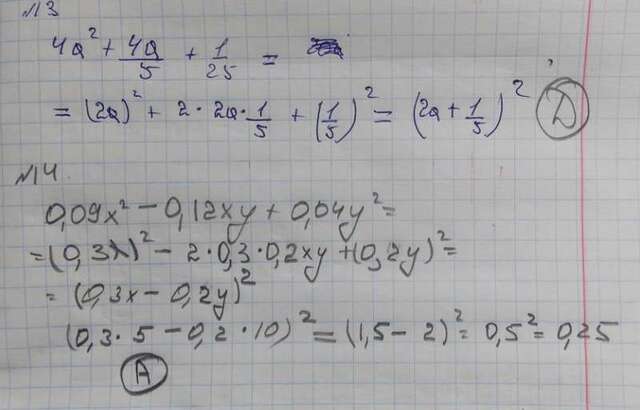 №13
4a² + 4a/5 + 1/25 =
= (2a)² + 2 · 2a · 1/5 + (1/5)² = (2a + 1/5)² Д
№14
0,09x² - 0,12xy + 0,04y² =
= (0,3x)² - 2·0,3·0,2xy + (0,2y)² =
= (0,3x - 0,2y)²
(0,3·5 - 0,2·10)² = (1,5 - 2)² = 0,5² = 0,25
А